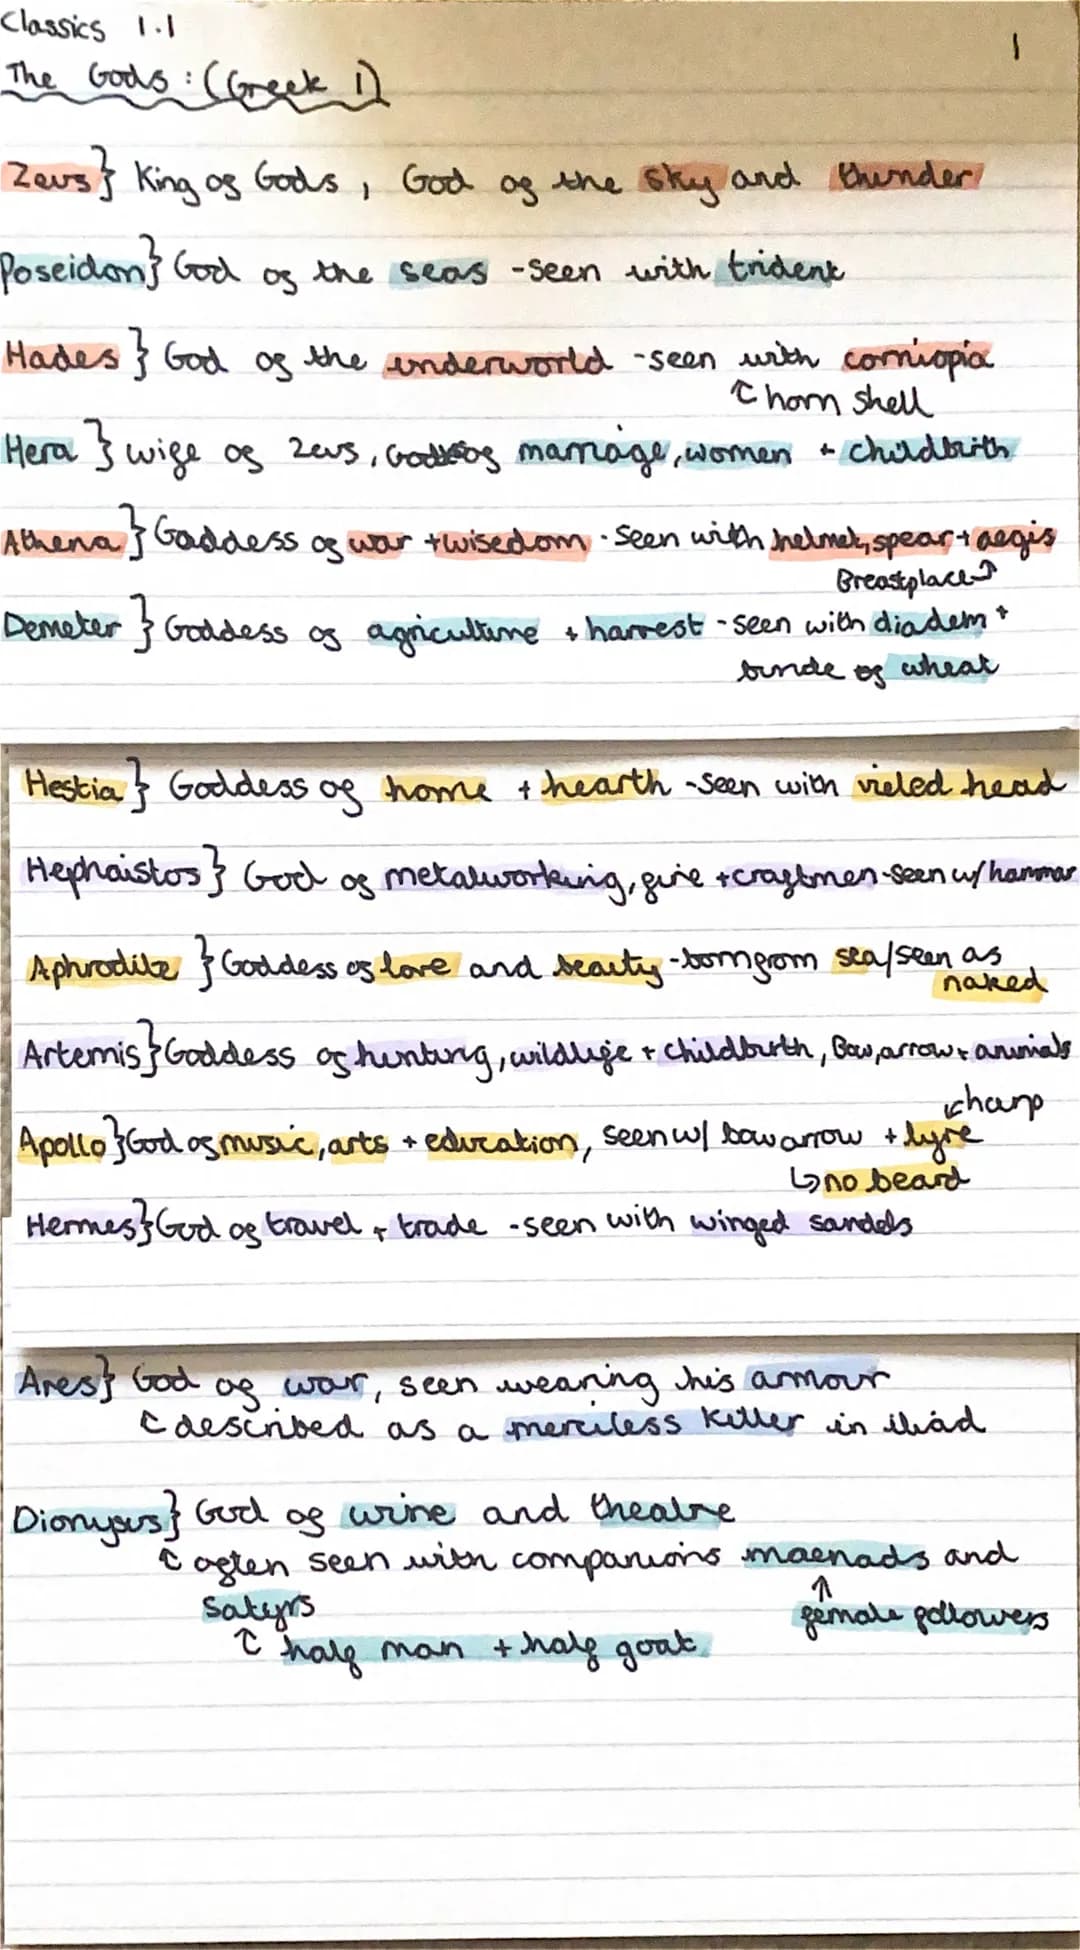 Classics 1.1
1
The Gods : (Greek 1)
Zeus} King of Gods, God of the sky and thunder
Poseidon} God of the seas - seen with trident
Hades } God of the underworld - seen with corniopia
horn shell
Hera } wife of Zeus, of marriage, women + childbirth
Athena } Goddess of war + wisedom - Seen with helmet, spear + aegis
Breastplace
Demeter } Goddess of agriculture + harvest - seen with diadem +
bunde of wheat
Hestia } Goddess of home + hearth - seen with vieled head
Hephaistos } God of metalworking, fire + craftmen - seen w/ hammar
Aphrodite } Goddess of love and beauty - born from sea/seen as
naked
Artemis} Goddess of hunting, wildlife + childbirth, Bow, arrow + animals
harp
Apollo } God of music, arts + education, seen w/ bow arrow + lyre
no beard
Hermes} God of travel + trade - seen with winged sandels
Ares } God of war, seen wearing his armour
described as a merciless killer in iliad
Dionysus } God of wine and theatre
often seen with companions maenads and
Satyrs
female followers
half man + half goat